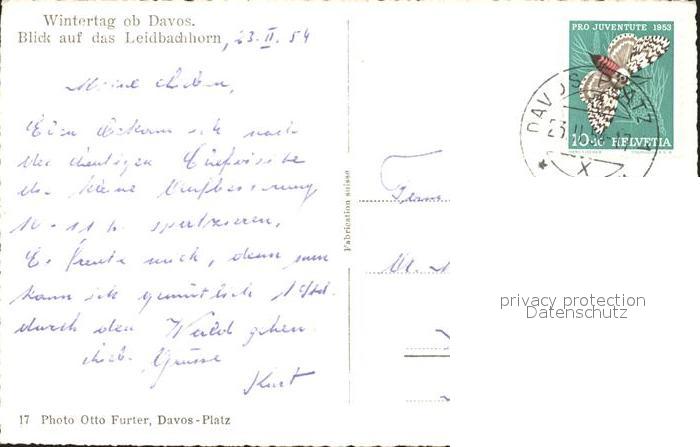 Wintertag ob Davos.
Blick auf das Leidbachhorn, 23. II. 54
Meine Lieben,
bekam ich nach
der heutigen Chefvisite
die kleine
10 - 11 h. spazieren.
Es freute mich, denn nun
kann ich gemütlich 1 Std.
durch den Wald gehen.
Liebe Grüsse
Kurt
17 Photo Otto Furter, Davos-Platz
Fabrication suisse
PRO JUVENTUTE 1953
DAVOS PLATZ
23. II.
10+10 HELVETIA
X
Fam
privacy protection
Datenschutz